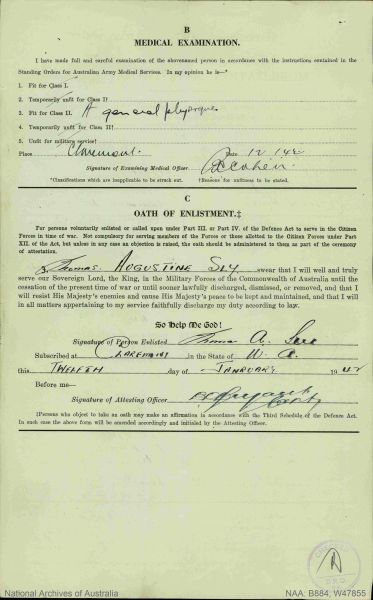 B
MEDICAL EXAMINATION.
I have made full and careful examination of the abovenamed person in accordance with the instructions contained in the
Standing Orders for Australian Army Medical Services. In my opinion he is—*
1. Fit for Class I.
2. Temporarily unfit for Class I†
3. Fit for Class II. A general physique
4. Temporarily unfit for Class II†
5. Unfit for military service†
Place Claremont. Date 12.1.42
Signature of Examining Medical Officer
*Classifications which are inapplicable to be struck out. †Reasons for unfitness to be stated.
C
OATH OF ENLISTMENT.‡
For persons voluntarily enlisted or called upon under Part III. or Part IV. of the Defence Act to serve in the Citizen
Forces in time of war. Not compulsory for serving members of the Forces or those allotted to the Citizen Forces under Part
XII. of the Act, but unless in any case an objection is raised, the oath should be administered to them as part of the ceremony
of attestation.
I, Thomas AUGUSTINE SLY swear that I will well and truly
serve our Sovereign Lord, the King, in the Military Forces of the Commonwealth of Australia until the
cessation of the present time of war or until sooner lawfully discharged, dismissed, or removed, and that I
will resist His Majesty's enemies and cause His Majesty's peace to be kept and maintained, and that I will
in all matters appertaining to my service faithfully discharge my duty according to law.
So Help Me God!
Signature of Person Enlisted Thomas A.
Subscribed at CLAREMONT in the State of W. A.
this TWELFTH day of JANUARY 1942
Before me—
Signature of Attesting Officer Capt
‡Persons who object to take an oath may make an affirmation in accordance with the Third Schedule of the Defence Act.
In such case the above form will be amended accordingly and initialed by the Attesting Officer.
National Archives of Australia
NAA: B884, W47855